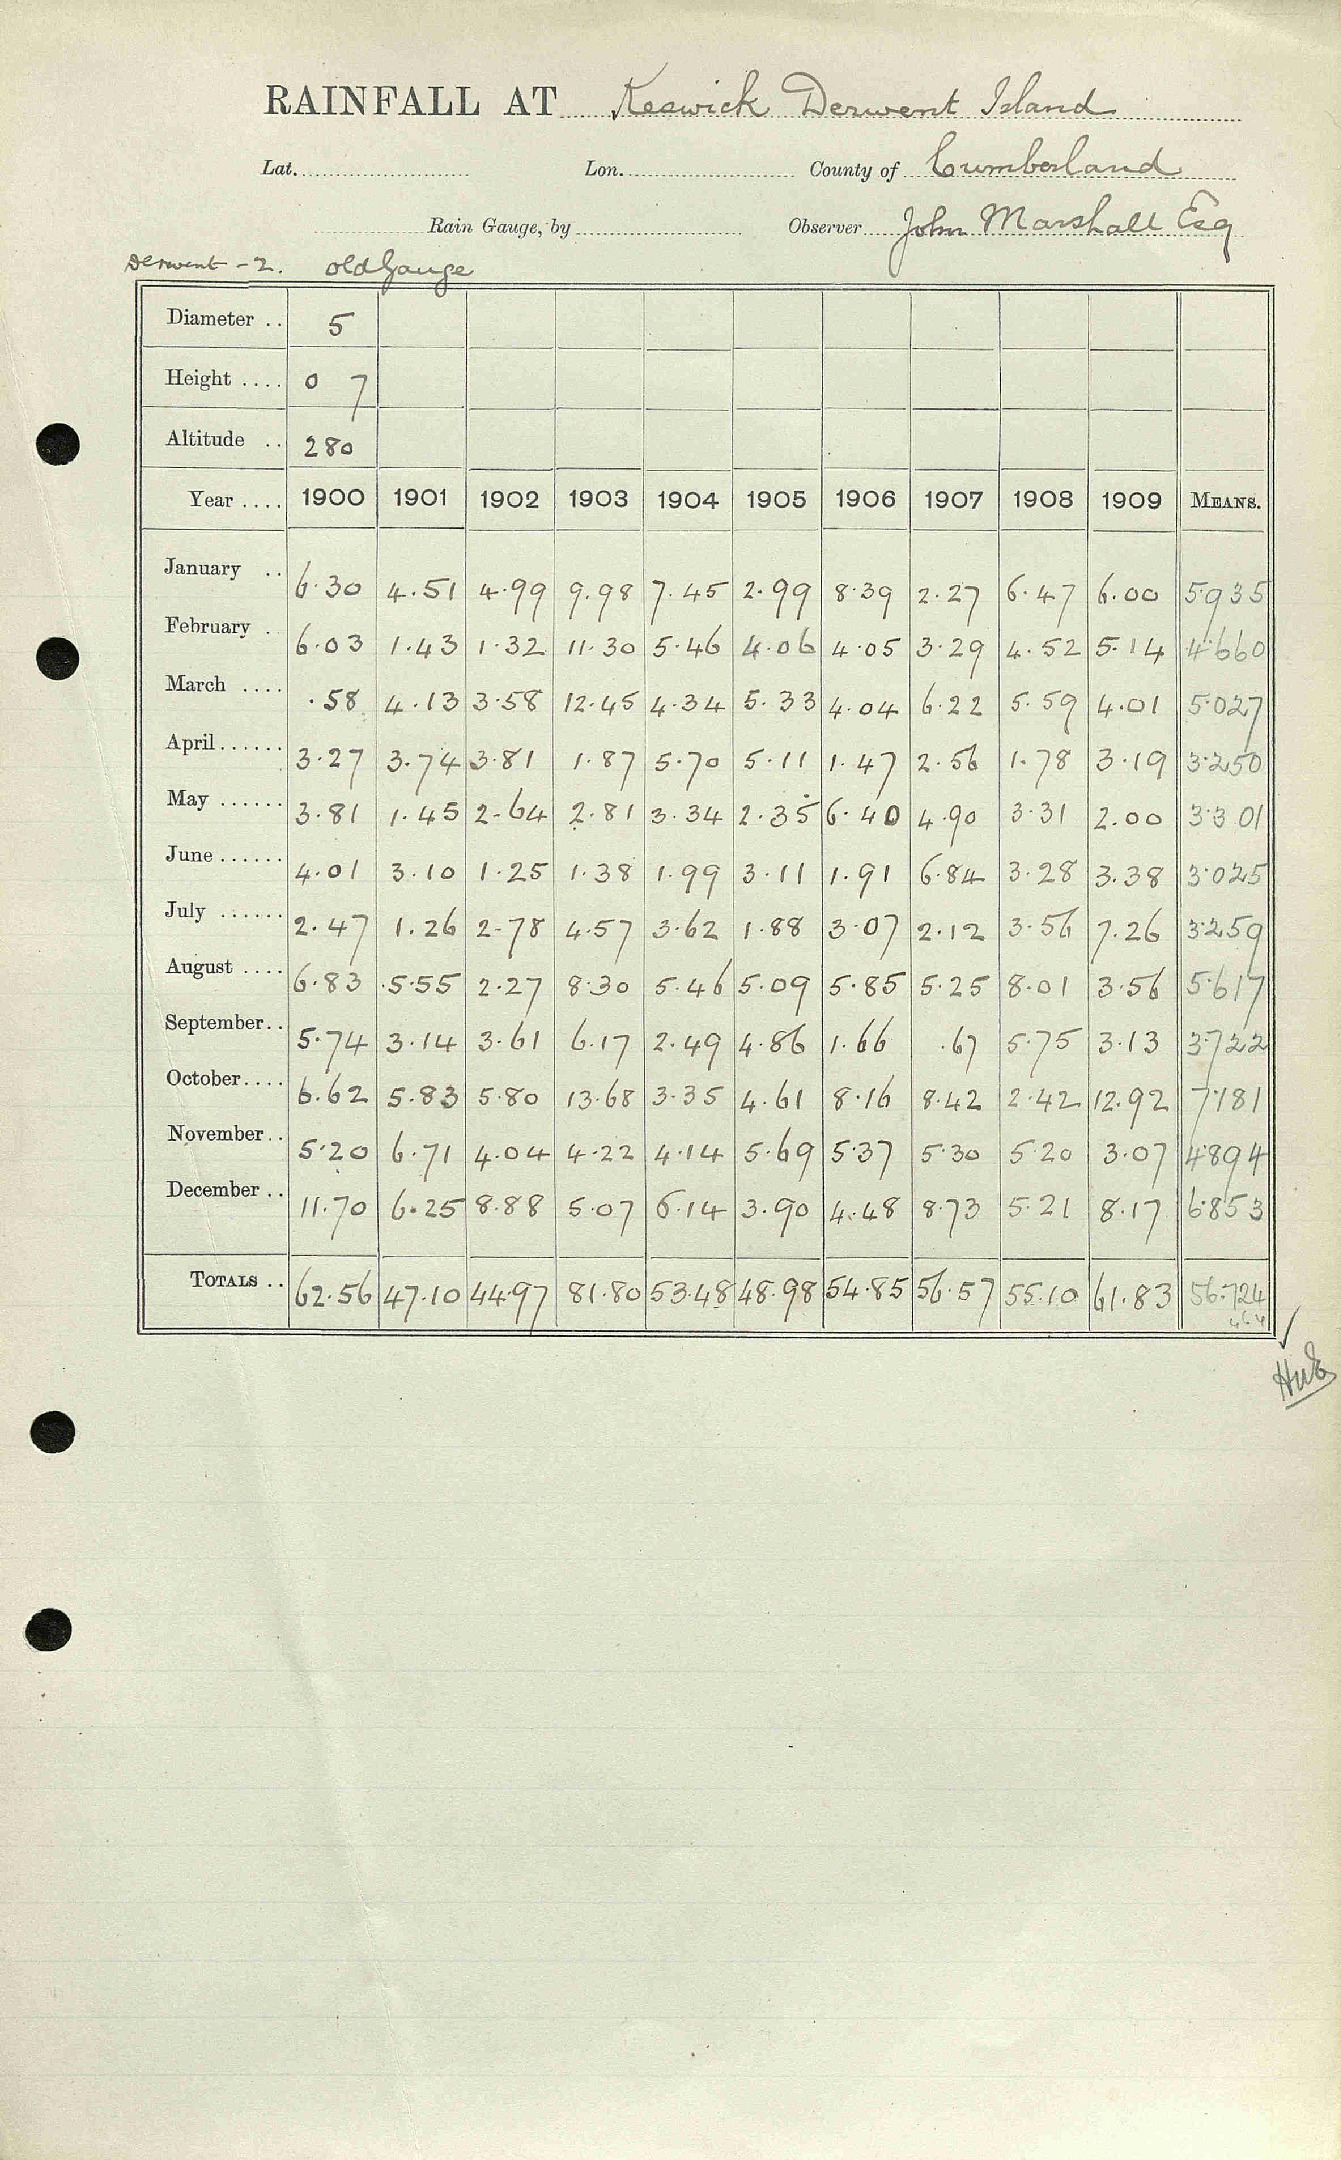 RAINFALL AT Keswick Derwent Island
Lat. Lon. County of Cumberland
Rain Gauge, by Observer John Marshall Esq
Derwent - 2. old Gauge
Diameter .. 5
Height .... 0 7
Altitude .. 280
Year .... 1900 1901 1902 1903 1904 1905 1906 1907 1908 1909 MEANS.
January .. 6.30 4.51 4.99 9.98 7.45 2.99 8.39 2.27 6.47 6.00 5.935
February . 6.03 1.43 1.32 11.30 5.46 4.06 4.05 3.29 4.52 5.14 4.660
March .... .58 4.13 3.58 12.45 4.34 5.33 4.04 6.22 5.59 4.01 5.027
April...... 3.27 3.74 3.81 1.87 5.70 5.11 1.47 2.56 1.78 3.19 3.250
May ...... 3.81 1.45 2.64 2.81 3.34 2.35 6.40 4.90 3.31 2.00 3.301
June ...... 4.01 3.10 1.25 1.38 1.99 3.11 1.91 6.84 3.28 3.38 3.025
July ...... 2.47 1.26 2.78 4.57 3.62 1.88 3.07 2.12 3.56 7.26 3.259
August .... 6.83 5.55 2.27 8.30 5.46 5.09 5.85 5.25 8.01 3.56 5.617
September.. 5.74 3.14 3.61 6.17 2.49 4.86 1.66 .67 5.75 3.13 3.722
October.... 6.62 5.83 5.80 13.68 3.35 4.61 8.16 8.42 2.42 12.92 7.181
November.. 5.20 6.71 4.04 4.22 4.14 5.69 5.37 5.30 5.20 3.07 4.894
December .. 11.70 6.25 8.88 5.07 6.14 3.90 4.48 8.73 5.21 8.17 6.853
TOTALS .. 62.56 47.10 44.97 81.80 53.48 48.98 54.85 56.57 55.10 61.83 56.724